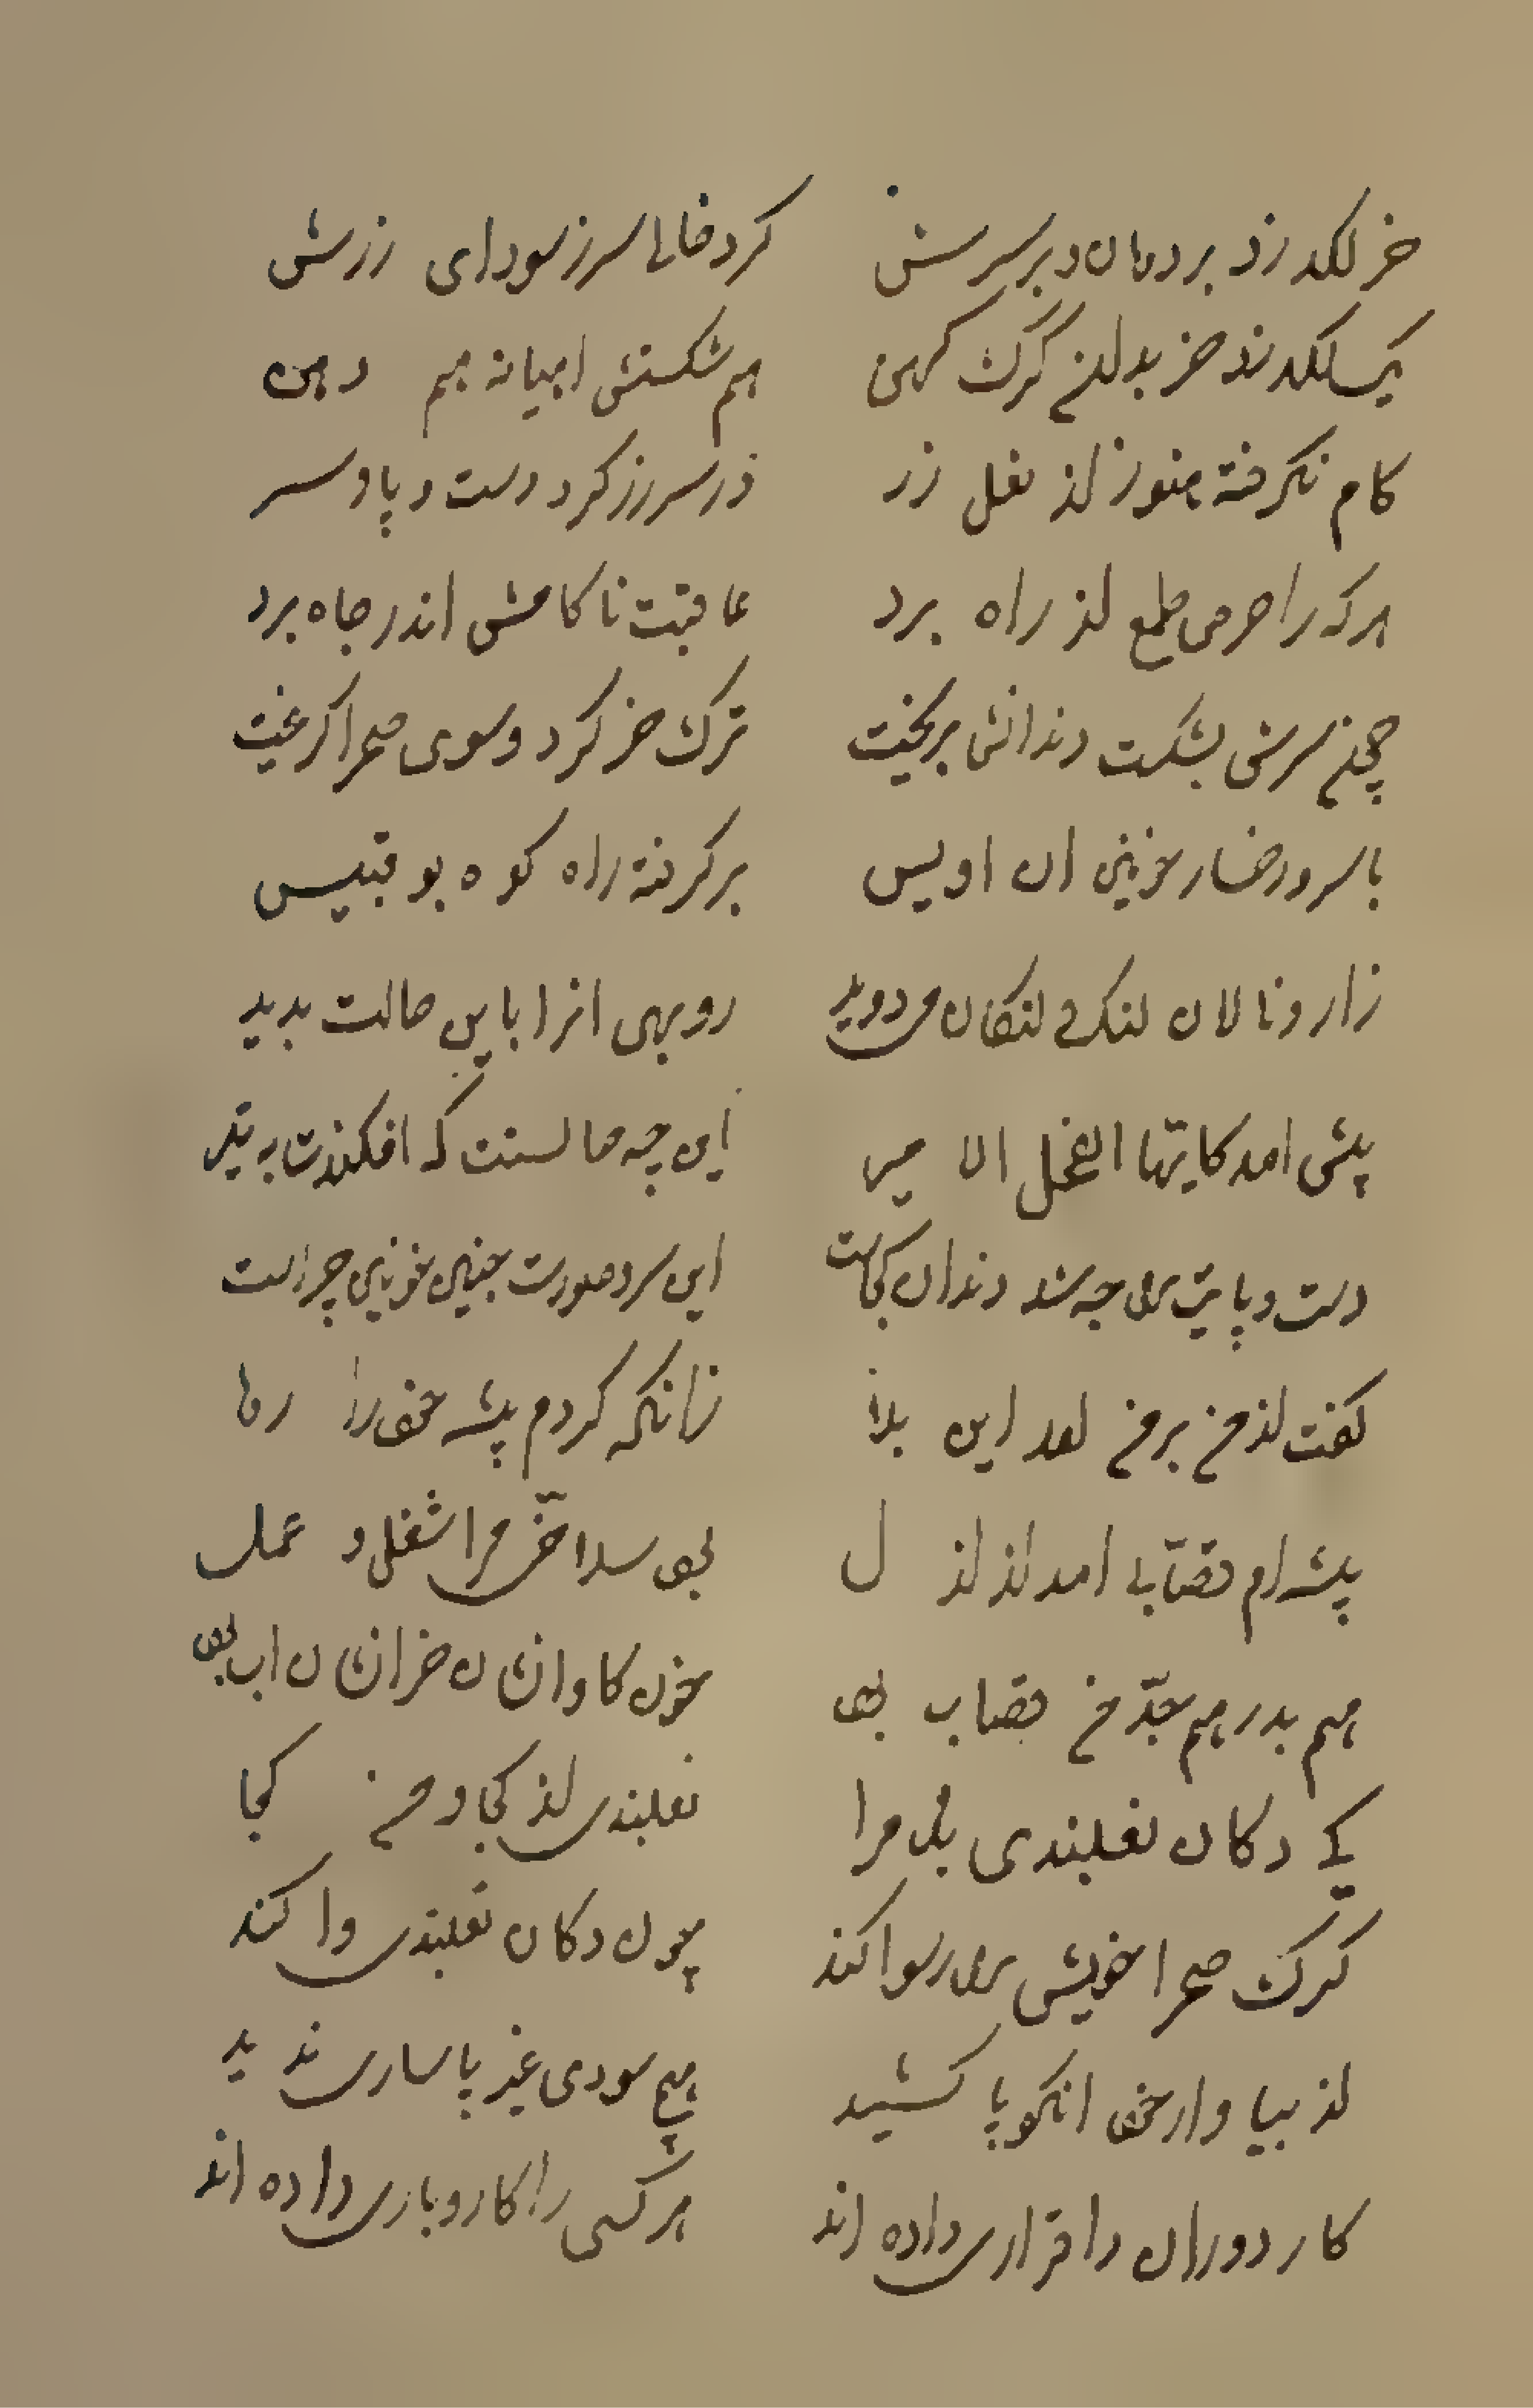 خر لکد زد بر دهان و بر سرش کرد خالی سر ز سودای زرش
یک لکد زد خر بدان کرک کهن هم شکستش چانه هم دهن
کام نکرفته هنوز از نعل زر در سر زر کرد دست و پا و سر
هر که را حرص طمع از راه برد عاقبت ناکامش اندر چاه برد
چون سرش بشکست دندانش بریخت ترک خر کرد و سوی صحرا کریخت
با سر و رخسار خونین ان اویس بر کرفته راه کوه بو قبیس
زار و نالان لنک لنکان می دوید روبهی انرا باین حالت بدید
پیش امد کایها الفحل الامیر این چه حالست که افکندت به تیر
دست و پایت را چه شد دندان کجاست این سر و صورت چنین خونین چراست
کفت از من بر من امد این بلا زانکه کردم پیشه خود را رها
پیشه ام قصابی امد از ازل بود سلاخی مرا شغل و عمل
هم پدر هم جد من قصاب بود خون کاوانشان خرانشان اب بود
کی دکان نعلبندی بد مرا نعلبندی از کجا و من کجا
کرک صحرا خویش را رسوا کند چون دکان نعلبندی وا کند
از بیاوار خود انکو پا کشید هیچ سودی غیر پاساری ندید
کار دوران را قراری داده اند هر کسی را کار و باری داده اند